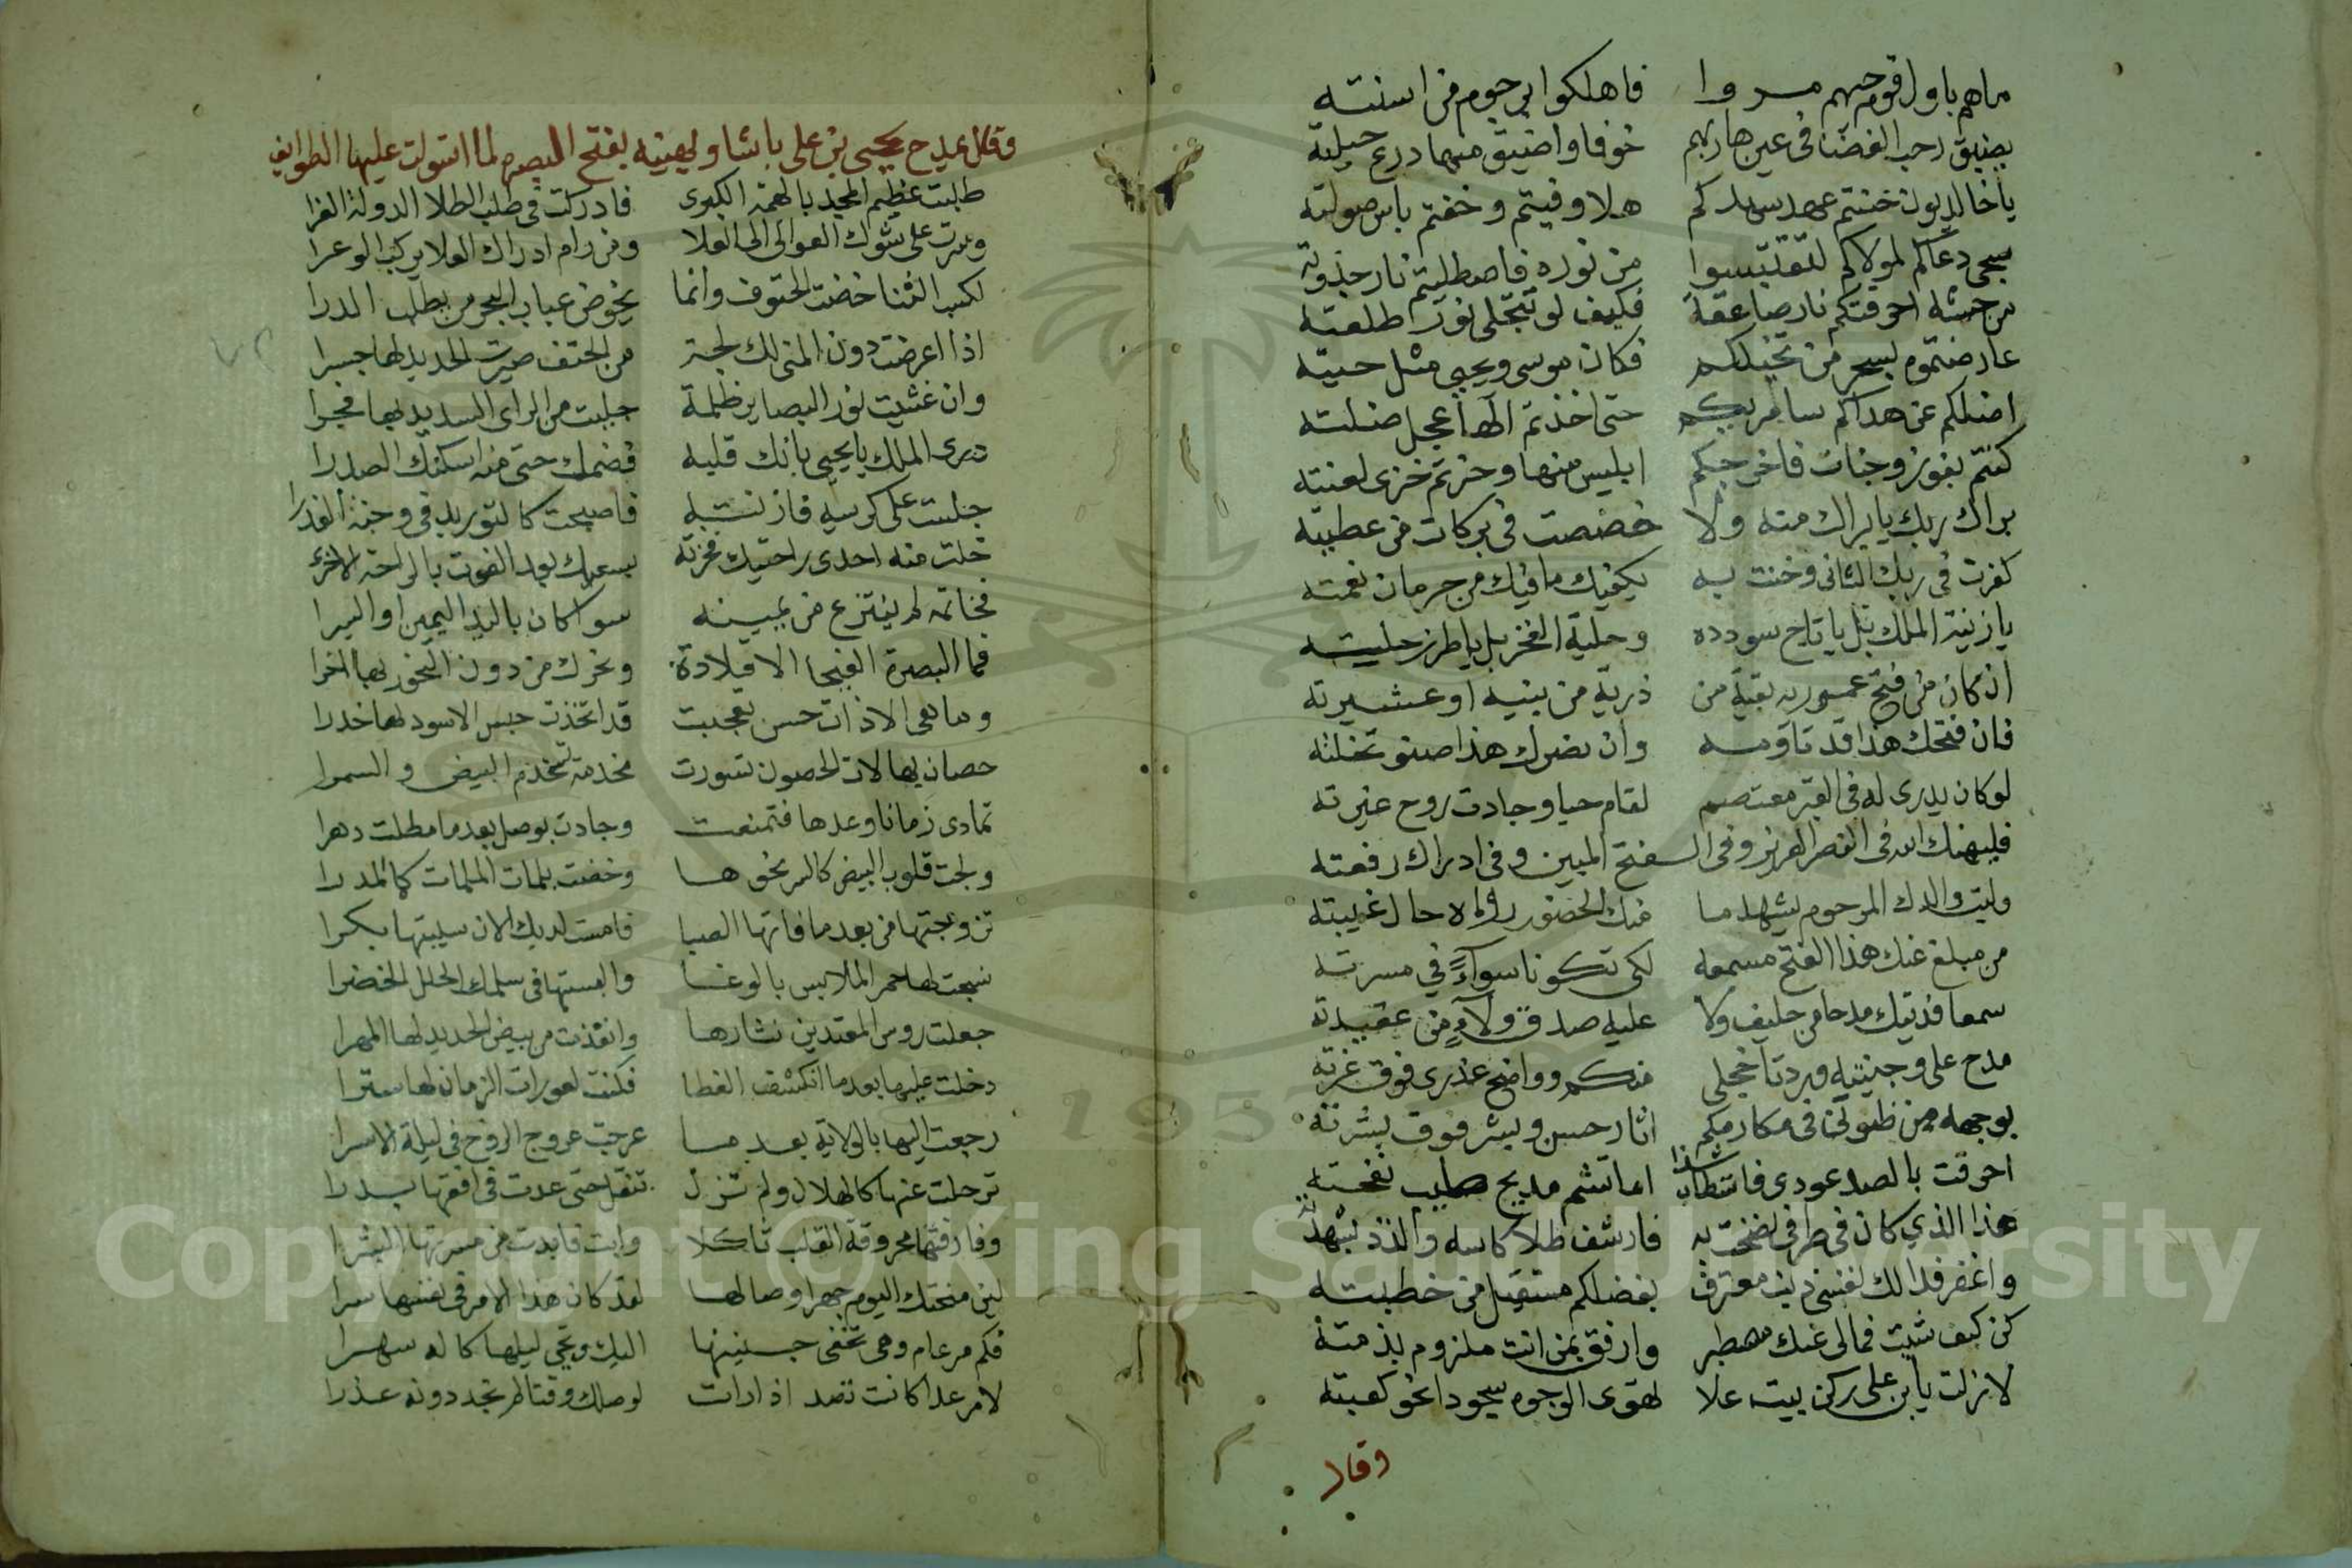 ماهم باول قوم حبهم مردوا فاهلكوا برجوم من اسنته
يضيق رحب الفضا في عين هاربهم خوفا واضيق منها درع حيلته
ياخالديون خنتم عهد سيدكم هلا وفيتم وخفتم باس صولته
يحيى دعاكم لمولاكم لتقتبسوا من نوره فاصطليتم نار جذوته
من جيشه احرقتكم نار صاعقة فكيف لو تتجلى نور طلعته
عارضتموه بسحر من تخيلكم فكان موسى ويحيى مثل حيته
اضلكم عن هداكم سامريكم حتى اخذتم الها عجل ضلته
كنتم بفوز وجنات فاخرجكم ابليس منها وحزتم خزى لعنته
براك ربك يا براك منه ولا خصصت في بركات من عطيته
كفرت في ربك الثاني وخنت به يكفيك ما فيك من حرمان نعمته
يا زينة الملك بل يا تاج سودده وحلية الفخر بل يا طرز حليته
ان كان من فتح عموريه بقية من ذرية من بنيه او عشيرته
فان فتحك هذا قد تاومه وان نصرك هذا صنو نخلته
لو كان يدرى له في القبر معتصم لقام حيا وجادت روح غيرته
فليهنك الله في النصر العزيز وفي الـفتح المبين وفي ادراك رفعته
وليت والدك المرحوم يشهد ما منك الحضور راه حال غيبته
من مبلغ عنك هذا الفتح مسمعه لكي تكونا سوآء في مسرته
سمعا فديتك مدحا من حليف ولا عليه صدق ولآء من عقيدته
مدح على وجنتيه وردتا خجلى منكم وواضح عذرى فوق غرته
بوجهه من ظنوني في مكارمكم اثار حسن وبشر فوق بشرته
احرقت بالصد عودى فاستطار شذا اما تشم مديح طيب نفحته
هذا الذي كان في ظرفي نضحت به فارشف طلا كاسه والذذ بشهدته
واغفر فدا لك نفسي ذنب معترف بفضلكم مستقيل من خطيته
كن كيف شيت فمالى عنك مصطبر وارفق بمن انت ملزوم بذمته
لا زلت يا بن على ركن بيت علا لهوى الوجوه سجودا نحو كعبته
وقال
وقال يمدح يحيى بن على باشا ويهنيه بفتح البصره لما استولت عليها الطوايف
طلبت عظيم المجد بالهمة الكبرى فادركت في طلب الطلا الدولة الغرا
وسرت على شوك العوالى الى العلا ومن رام ادراك العلا يركب الوعرا
لكسب الثنا خضت الحتوف وانما يخوض عباب البحر من يطلب الدرا
اذا اعرضت دون المنى لك لجة من الحتف صيرت الحديد لها جسرا
وان غشيت نور البصاير ظلمة جلبت من الراى السديد لها فجرا
درى الملك يا يحيى بانك قلبه فضمك حتى منه اسكنك الصدرا
جلست على كرسيه فازنت به فاصبحت كالتوريد في وجنة العذرا
خلت منه احدى راحتيك فحزته بسعيك بعد الفوت بالراحة الاخرى
فخاتمه لم ينتزع من يمينه سوا كان باليد اليمين او اليسرا
فما البصرة الفيحا الا قلادة ونحرك من دون النحور بها احرا
وما هي الا ذات حسن تحجبت قد اتخذت حبس الاسود لها خدرا
حصان بهالات الحصون تسورت مخدمة تخدم البيض والسمرا
تمادى زمانا وعدها فتمنعت وجادت بوصل بعد ما مطلت دهرا
ولجت قلوب البيض كالسر نحوها وخضت بلمات الملمات كالمدرا
تزوجتها من بعد ما فاتها الصبا فامست لديك الان سيبتها بكرا
نسجت لها حمر الملابس بالوغا والبستها في سلمك الحلل الخضرا
جعلت روس المعتدين نثارها وانقذت من بيض الحديد لها المهرا
دخلت عليها بعد ما انكشف الغطا فكنت لعورات الزمان لها سترا
رجعت اليها بالولاية بعد ما عرجت عروج الروح في ليلة الاسرا
ترحلت عنها كالهلال ولم تزل تنقل حتى عدت في افقها بدرا
وفارقتها محروقة القلب ثاكلا وابت فابدت من مسرتها البشرا
لين منحتك اليوم جهرا وصالها لقد كان هذا الامر في نفسها سرا
فكم مر عام وهى تخفى حنينها اليك وتحي ليلها كله سهرا
لامر عدا كانت تصد اذا رات لوصلك وقتا لم تجد دونه عذرا